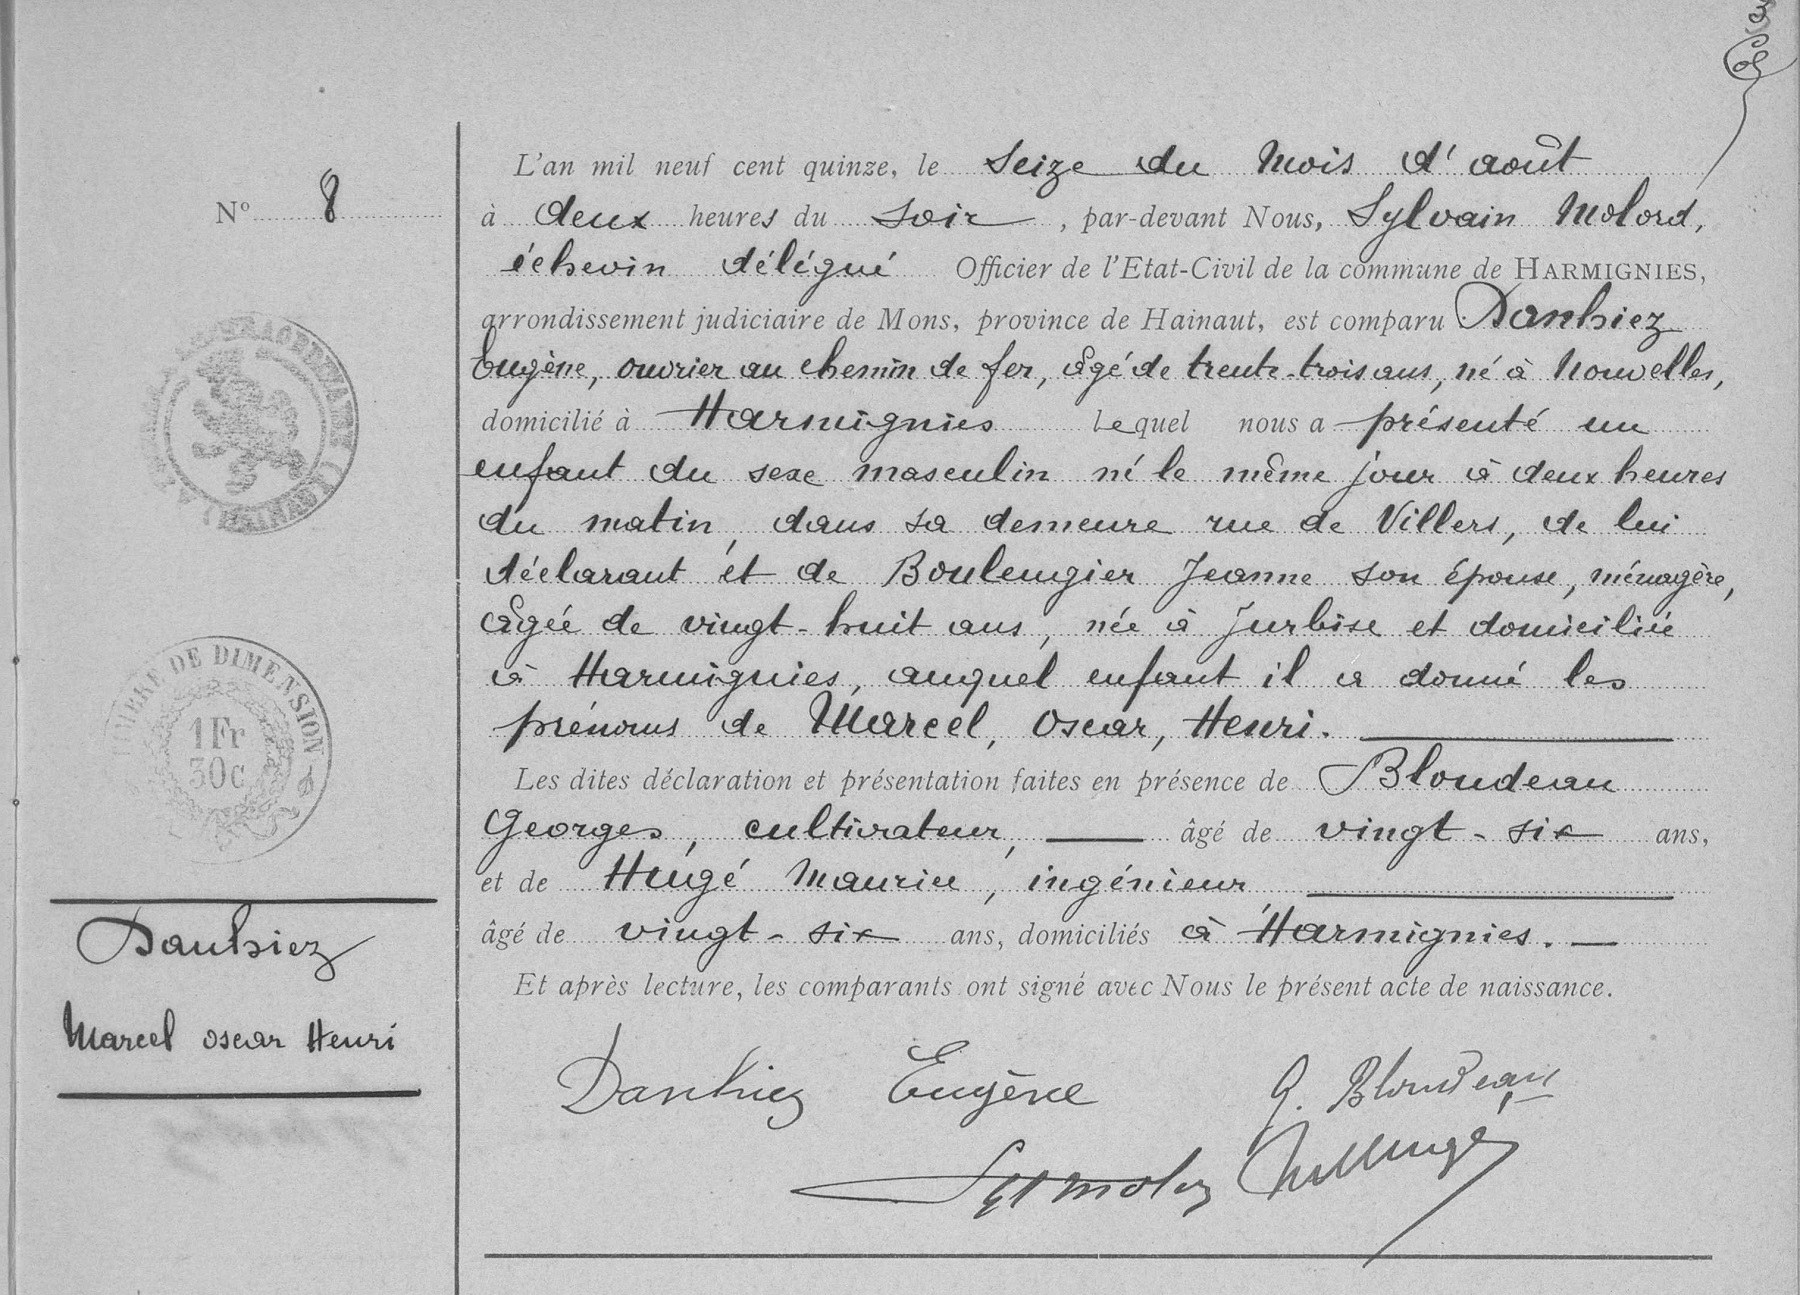 N° 8
L'an mil neuf cent quinze, le seize du mois d'août
à deux heures du soir, par-devant Nous, Sylvain Molord,
échevin délégué Officier de l'Etat-Civil de la commune de HARMIGNIES,
arrondissement judiciaire de Mons, province de Hainaut, est comparu Danhiez
Eugène, ouvrier au chemin de fer, âgé de trente-trois ans, né à Nouvelles,
domicilié à Harmignies lequel nous a présenté un
enfant du sexe masculin né le même jour à deux heures
du matin, dans sa demeure rue de Villers, de lui
déclarant et de Boulengier Jeanne son épouse, ménagère,
âgée de vingt-huit ans, née à Jurbise et domiciliée
à Harmignies, auquel enfant il a donné les
prénoms de Marcel, Oscar, Henri.
Les dites déclaration et présentation faites en présence de Blondeau
Georges, cultivateur, âgé de vingt-six ans,
et de Hugé Maurice, ingénieur
âgé de vingt-six ans, domiciliés à Harmignies.
Et après lecture, les comparants ont signé avec Nous le présent acte de naissance.
Danhiez Eugène G. Blondeau
TIMBRE DE DIMENSION
1 Fr
30c
Danhiez
Marcel Oscar Henri